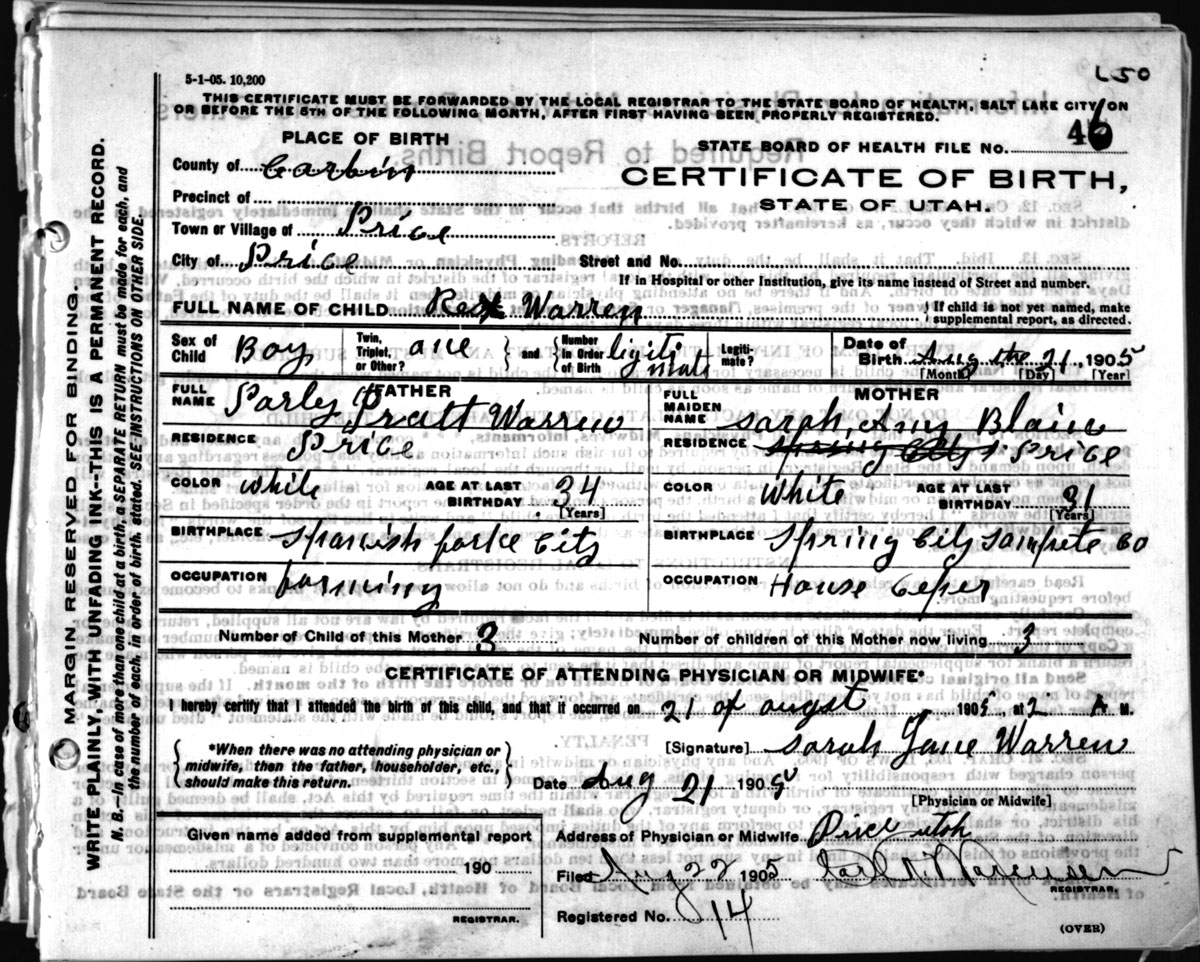 5-1-05. 10,200
L50
THIS CERTIFICATE MUST BE FORWARDED BY THE LOCAL REGISTRAR TO THE STATE BOARD OF HEALTH, SALT LAKE CITY, ON
OR BEFORE THE 5TH OF THE FOLLOWING MONTH, AFTER FIRST HAVING BEEN PROPERLY REGISTERED.
46
PLACE OF BIRTH
STATE BOARD OF HEALTH FILE NO.
County of Carbin
CERTIFICATE OF BIRTH,
STATE OF UTAH.
Precinct of
Town or Village of Price
City of Price Street and No.
If in Hospital or other Institution, give its name instead of Street and number.
FULL NAME OF CHILD Rex Warren If child is not yet named, make supplemental report, as directed.
Sex of Child Boy Twin, Triplet, or Other? one and Number in Order of Birth ligiti mate Legiti- mate? Date of Birth Aug the 21, 1905
[Month] [Day] [Year]
FATHER
FULL NAME Parley Pratt Warren
RESIDENCE Price
COLOR White AGE AT LAST BIRTHDAY 34 [Years]
BIRTHPLACE Spanish forke City
OCCUPATION farming
MOTHER
FULL MAIDEN NAME Sarah, Amy Blain
RESIDENCE Price
COLOR White AGE AT LAST BIRTHDAY 31 [Years]
BIRTHPLACE Spring City Sanpete Co
OCCUPATION House Ceper
Number of Child of this Mother 3 Number of children of this Mother now living 3
CERTIFICATE OF ATTENDING PHYSICIAN OR MIDWIFE*
I hereby certify that I attended the birth of this child, and that it occurred on 21 of augst 1905, at 2 A M.
*When there was no attending physician or
midwife, then the father, householder, etc.,
should make this return.
[Signature] Sarah Jane Warren
Date Aug 21 1905
[Physician or Midwife]
Given name added from supplemental report
190
REGISTRAR.
Address of Physician or Midwife Price utah
Filed Aug 22 1905
REGISTRAR.
Registered No. 14
(OVER)
MARGIN RESERVED FOR BINDING.
WRITE PLAINLY, WITH UNFADING INK--THIS IS A PERMANENT RECORD.
N. B.--In case of more than one child at a birth, a SEPARATE RETURN must be made for each, and
the number of each, in order of birth, stated. SEE INSTRUCTIONS ON OTHER SIDE.